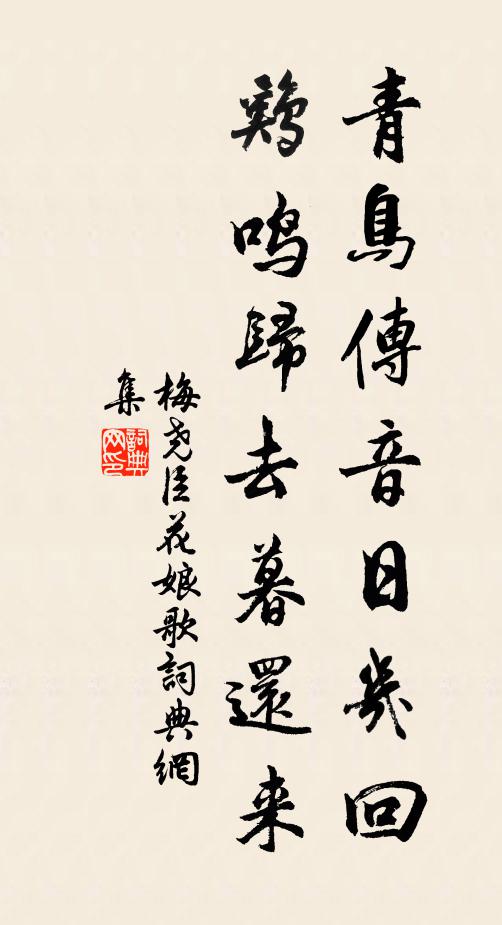 青鳥傳音日幾回
鷄鳴歸去暮還来
梅尧臣花娘歌詞典網
集
詞典网印